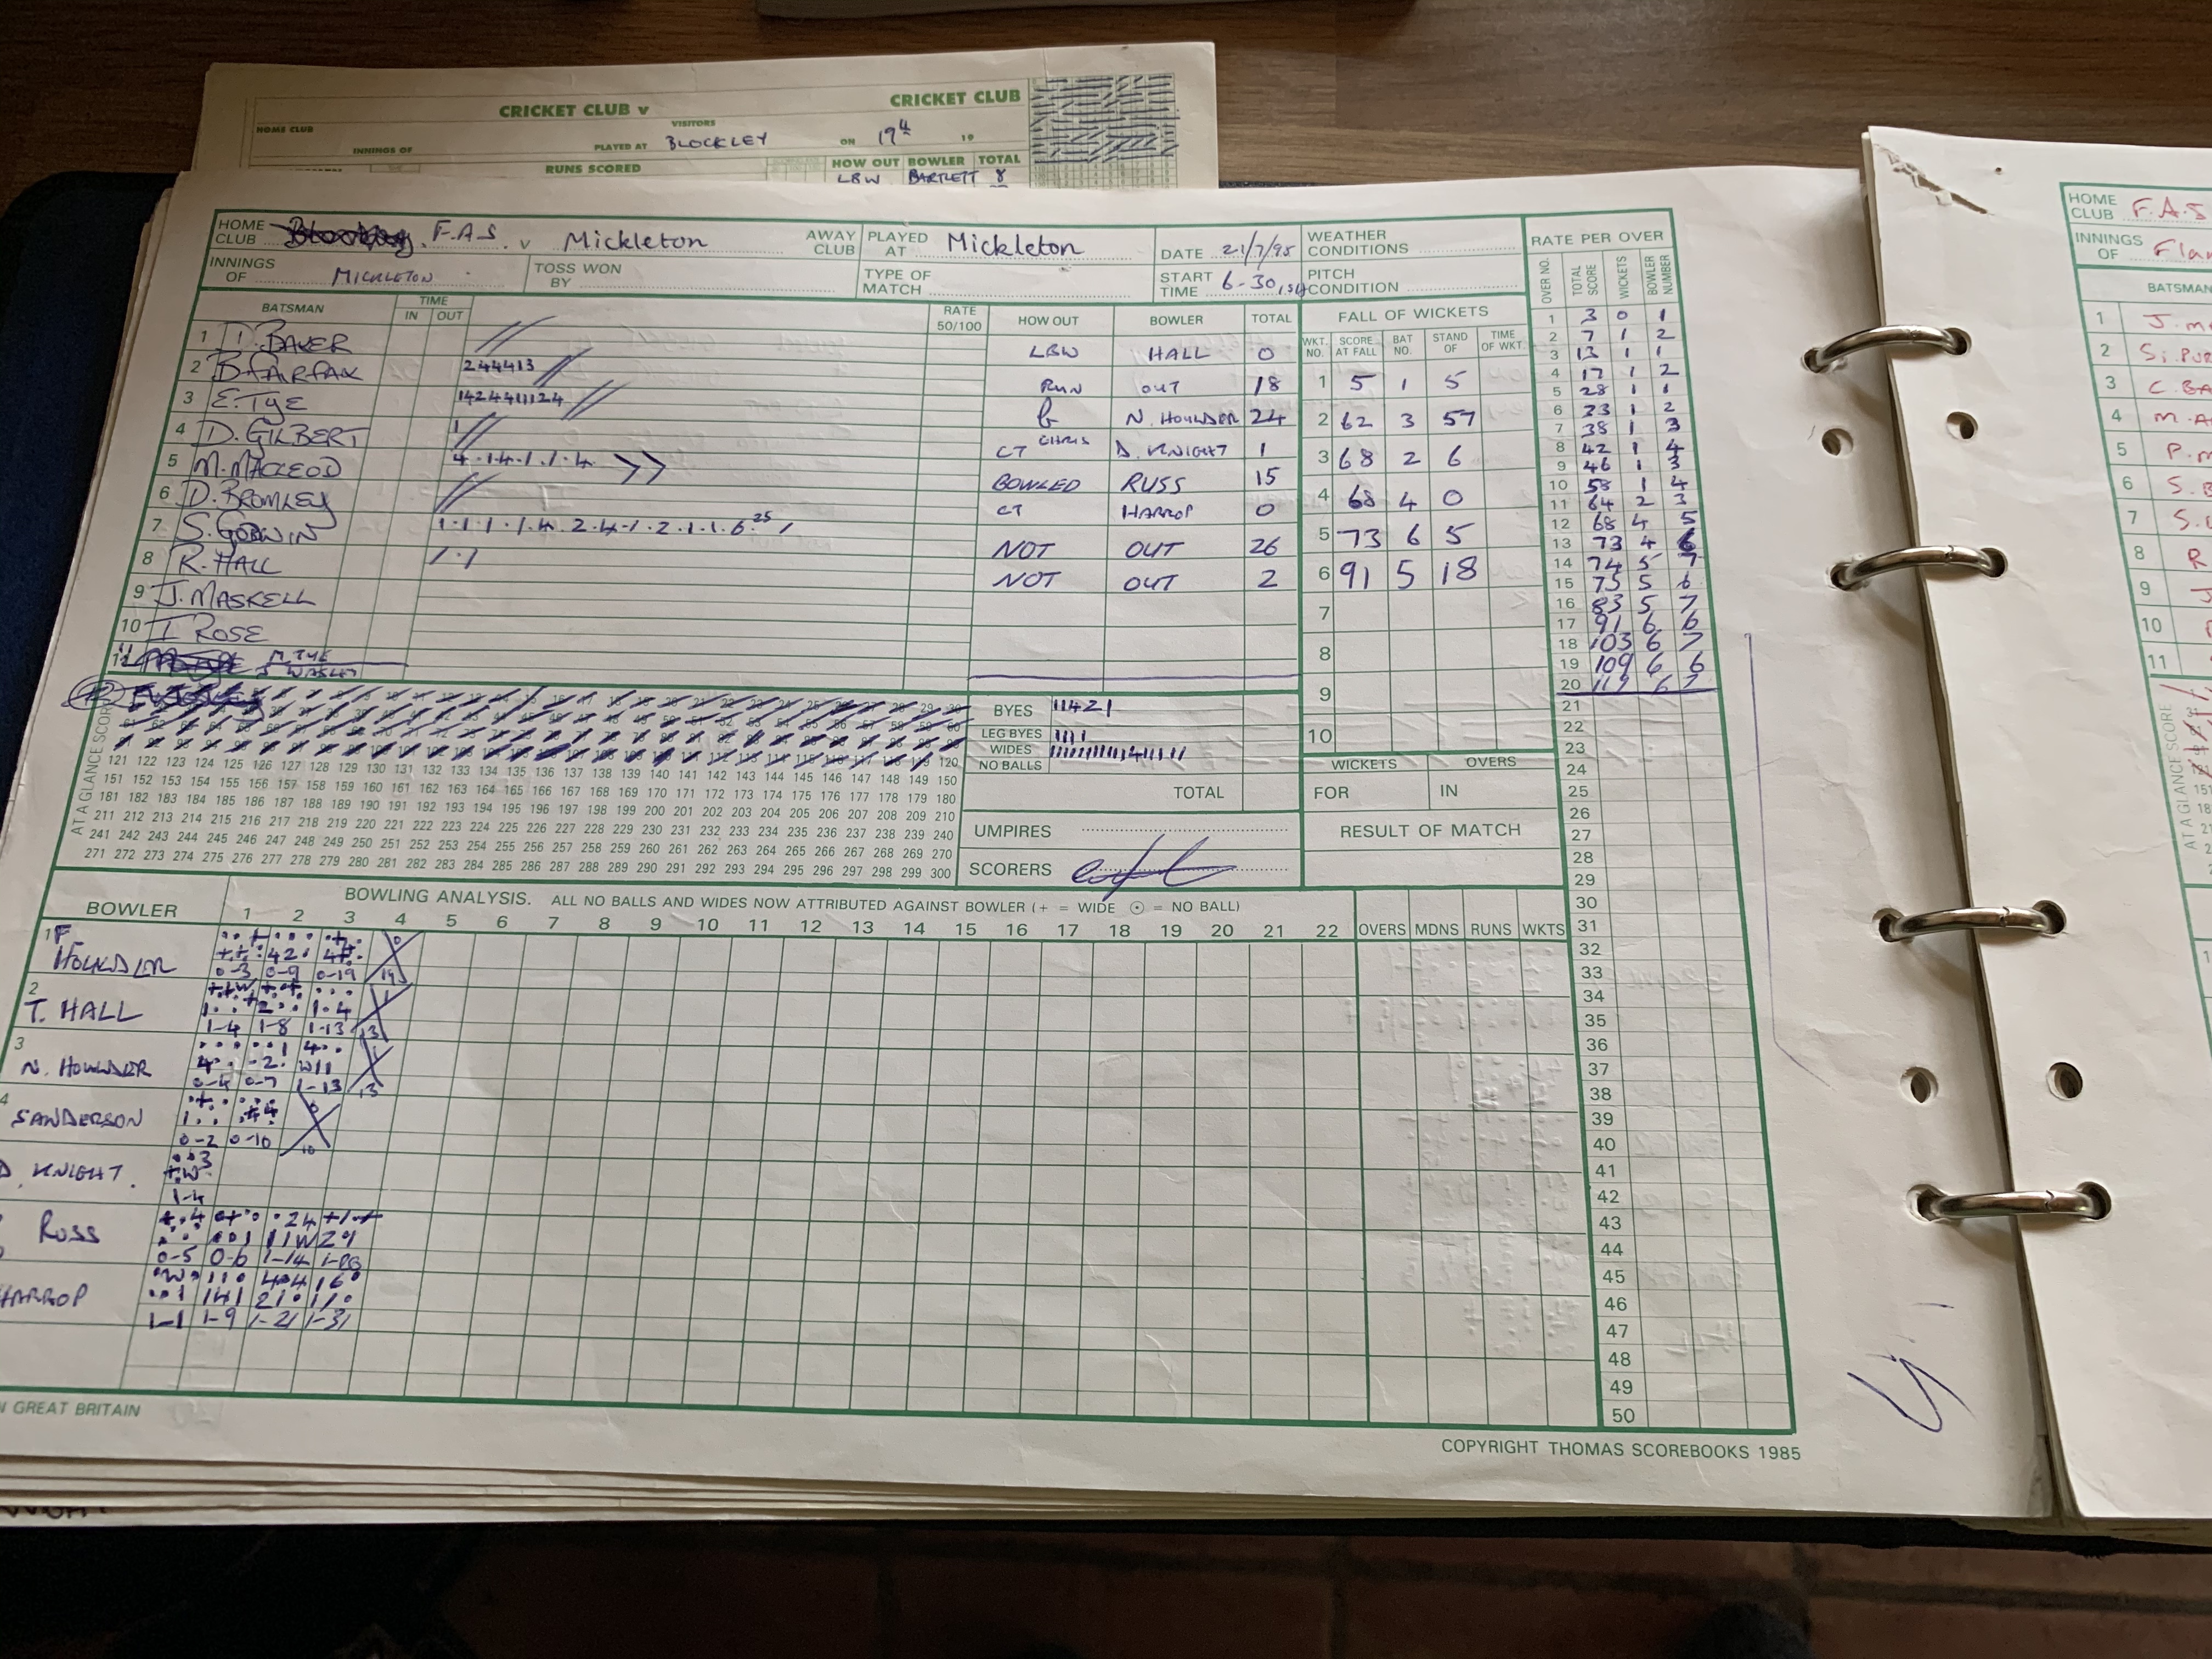 CRICKET CLUB v CRICKET CLUB
HOME CLUB VISITORS
INNINGS OF PLAYED AT BLOCKLEY ON 19th 19
RUNS SCORED HOW OUT BOWLER TOTAL
LBW BARTLETT 8
HOME CLUB F.A.S. v Mickleton AWAY CLUB PLAYED AT Mickleton DATE 21/7/95 WEATHER CONDITIONS
INNINGS OF MICKLETON TOSS WON BY TYPE OF MATCH START TIME 6-30 PITCH CONDITION
BATSMAN TIME IN OUT RATE 50/100 HOW OUT BOWLER TOTAL
1 BAKER LBW HALL 0
2 B. FAIRFAX 244413 RUN OUT 18
3 E. Tye 1424411124 B N. HOULDER 24
4 D. GILBERT 1 CT CHRIS D. KNIGHT 1
5 M. MACLEOD 4.1.4.1.1.4. BOWLED RUSS 15
6 D. BROMLEY CT HARROP 0
7 S. GODWIN 1.1.1.1.4.2.4.1.2.1.1.6.25 1 NOT OUT 26
8 R. HALL 1.1 NOT OUT 2
9 J. MASKELL
10 I ROSE
11 M. TYE
FALL OF WICKETS
WKT. NO. SCORE AT FALL BAT NO. STAND OF TIME OF WKT.
1 5 1 5
2 62 3 57
3 68 2 6
4 68 4 0
5 73 6 5
6 91 5 18
7
8
9
10
RATE PER OVER
OVER NO. TOTAL SCORE WICKETS BOWLER NUMBER
1 3 0 1
2 7 1 2
3 13 1 1
4 17 1 2
5 28 1 1
6 33 1 2
7 38 1 3
8 42 1 4
9 46 1 3
10 58 1 4
11 64 2 3
12 68 4 5
13 73 4 6
14 74 5 7
15 75 5 6
16 83 5 7
17 91 6 6
18 103 6 7
19 109 6 6
20 119 6 7
21
22
23
24
25
26
27
28
29
30
31
32
33
34
35
36
37
38
39
40
41
42
43
44
45
46
47
48
49
50
AT A GLANCE SCORE
121 122 123 124 125 126 127 128 129 130 131 132 133 134 135 136 137 138 139 140 141 142 143 144 145 146 147 148 149 150
151 152 153 154 155 156 157 158 159 160 161 162 163 164 165 166 167 168 169 170 171 172 173 174 175 176 177 178 179 180
181 182 183 184 185 186 187 188 189 190 191 192 193 194 195 196 197 198 199 200 201 202 203 204 205 206 207 208 209 210
211 212 213 214 215 216 217 218 219 220 221 222 223 224 225 226 227 228 229 230 231 232 233 234 235 236 237 238 239 240
241 242 243 244 245 246 247 248 249 250 251 252 253 254 255 256 257 258 259 260 261 262 263 264 265 266 267 268 269 270
271 272 273 274 275 276 277 278 279 280 281 282 283 284 285 286 287 288 289 290 291 292 293 294 295 296 297 298 299 300
BYES 11421
LEG BYES 111
WIDES
NO BALLS
TOTAL
UMPIRES
SCORERS
WICKETS OVERS
FOR IN
RESULT OF MATCH
BOWLING ANALYSIS. ALL NO BALLS AND WIDES NOW ATTRIBUTED AGAINST BOWLER (+ = WIDE ⊙ = NO BALL)
BOWLER 1 2 3 4 5 6 7 8 9 10 11 12 13 14 15 16 17 18 19 20 21 22 OVERS MDNS RUNS WKTS
1 F HOULDER 0-3 0-9 0-19
2 T. HALL 1-4 1-8 1-13
3 N. HOULDER 0-4 0-7 1-13
4 SANDERSON 0-2 0-10
D. KNIGHT. 1-4
RUSS 0-5 0-6 1-14
HARROP 1-1 1-9 1-21 1-31
N GREAT BRITAIN
COPYRIGHT THOMAS SCOREBOOKS 1985
HOME CLUB F.A.S
INNINGS OF
BATSMAN
1
2
3
4
5
6
7
8
9
10
11
AT A GLANCE SCORE